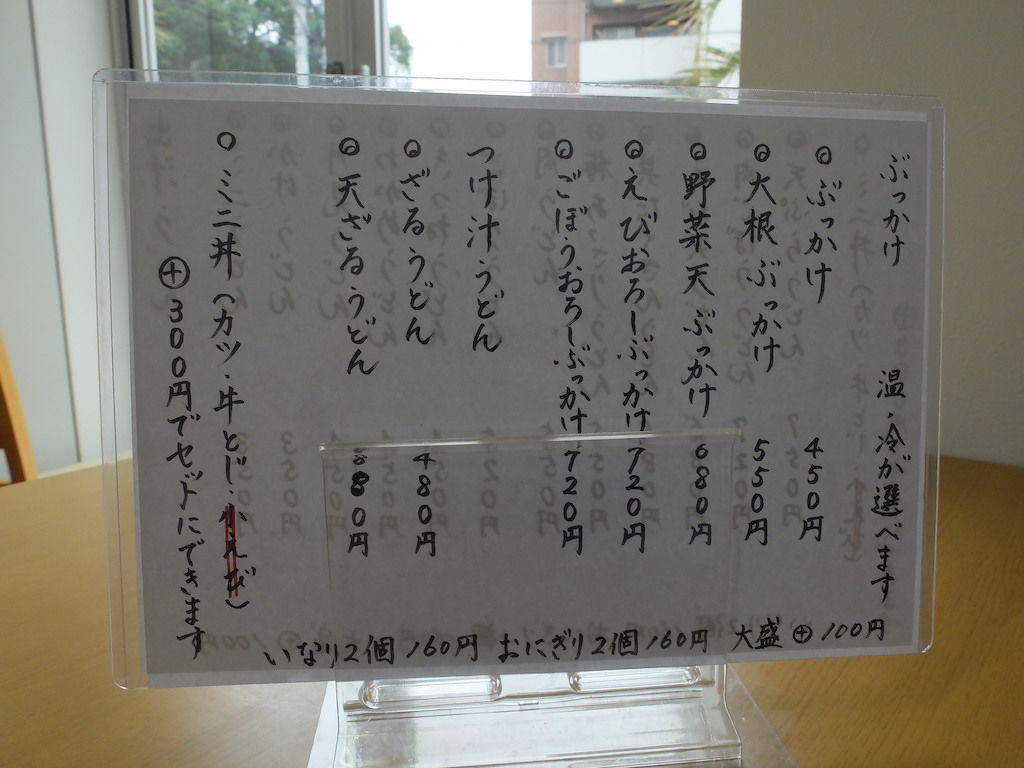 ぶっかけ 温・冷が選べます
◎ ぶっかけ 450円
◎ 大根ぶっかけ 550円
◎ 野菜天ぶっかけ 680円
◎ えびおろしぶっかけ 720円
◎ ごぼうおろしぶっかけ 720円
つけ汁うどん
◎ ざるうどん 480円
◎ 天ざるうどん 880円
○ ミニ丼(カツ・牛とじ・小えび)
⊕300円でセットにできます
いなり2個160円 おにぎり2個160円 大盛⊕100円